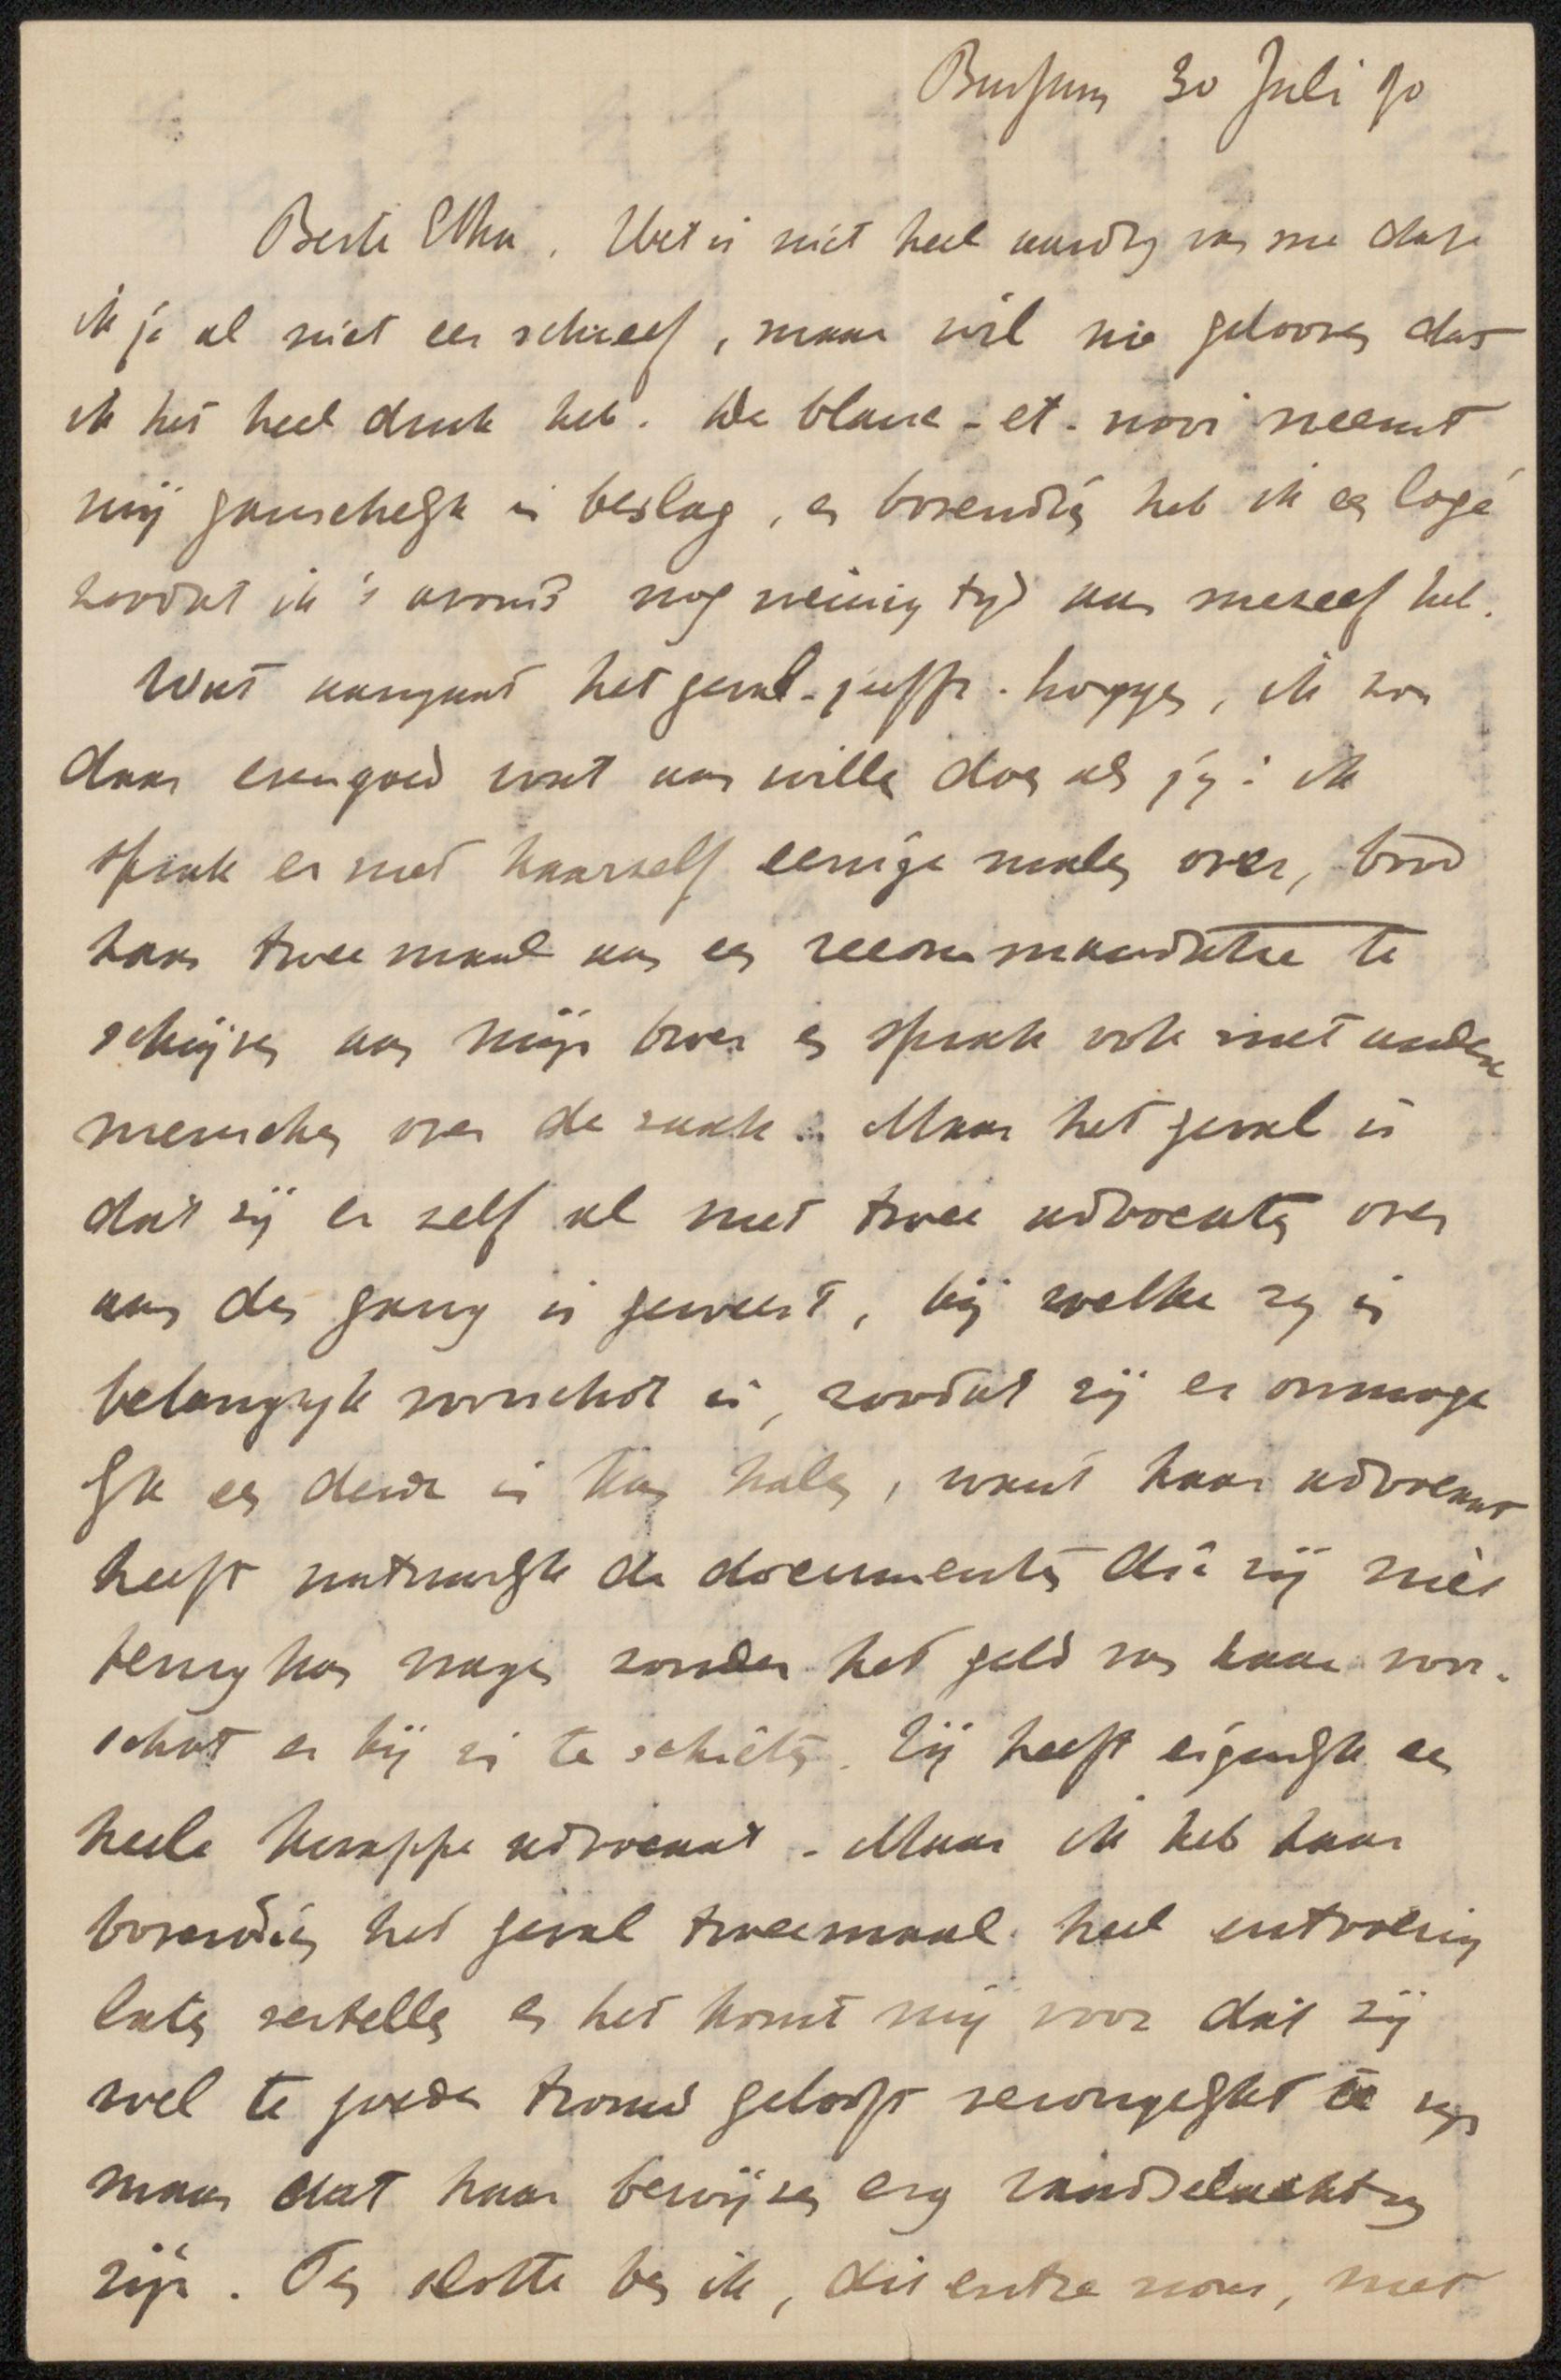 Bussum 30 Juli 90
Beste Etha. Het is niet heel aardig van me dat
ik je al niet eer schreef, maar wil me gelooven dat
ik het heel druk heb. De blanc-et-noir neemt
mij ganschelijk in beslag, en bovendien heb ik een logé
zoodat ik 's avonds nog weinig tijd aan mezelf heb.
Wat aangaat het geval-juffr. , ik zou
daar evengoed wat aan willen doen als jij: ik
sprak er met haarzelf eenige malen over, bood
haar tweemaal aan een recommandatie te
schrijven aan mijn broer en sprak ook met andere
menschen over de zaak. Maar het geval is
dat zij er zelf al met twee advocaten over
aan den gang is geweest, bij welke zij in
belangrijk voorschot is, zoodat zij er onmoge
lijk een derde in kan halen, want haar advocaat
heeft natuurlijk de documenten die zij niet
terug kan vragen zonder het geld van haar voor-
schot er bij in te schieten. Zij heeft eigenlijk een
heele knappe advocaat. Maar ik heb haar
bovendien het geval tweemaal heel entvoerig
laten vertellen en het komt mij voor dat zij
wel te goeder trouw gelooft verongelijkt te zijn
maar dat haar bewijzen erg
zijn. Ten slotte ben ik, dit entre nous, met